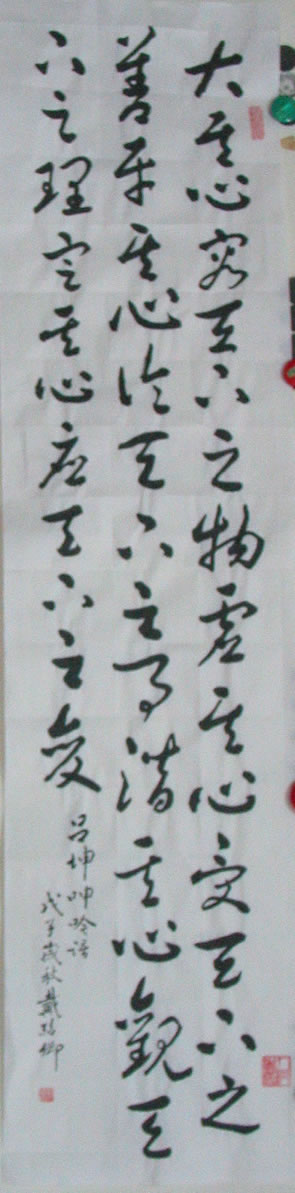 大其心容天下之物虚其心受天下之
善平其心论天下之事潜其心觀天
下之理定其心应天下之变
吕坤呻吟语
戊子歲秋戴卿